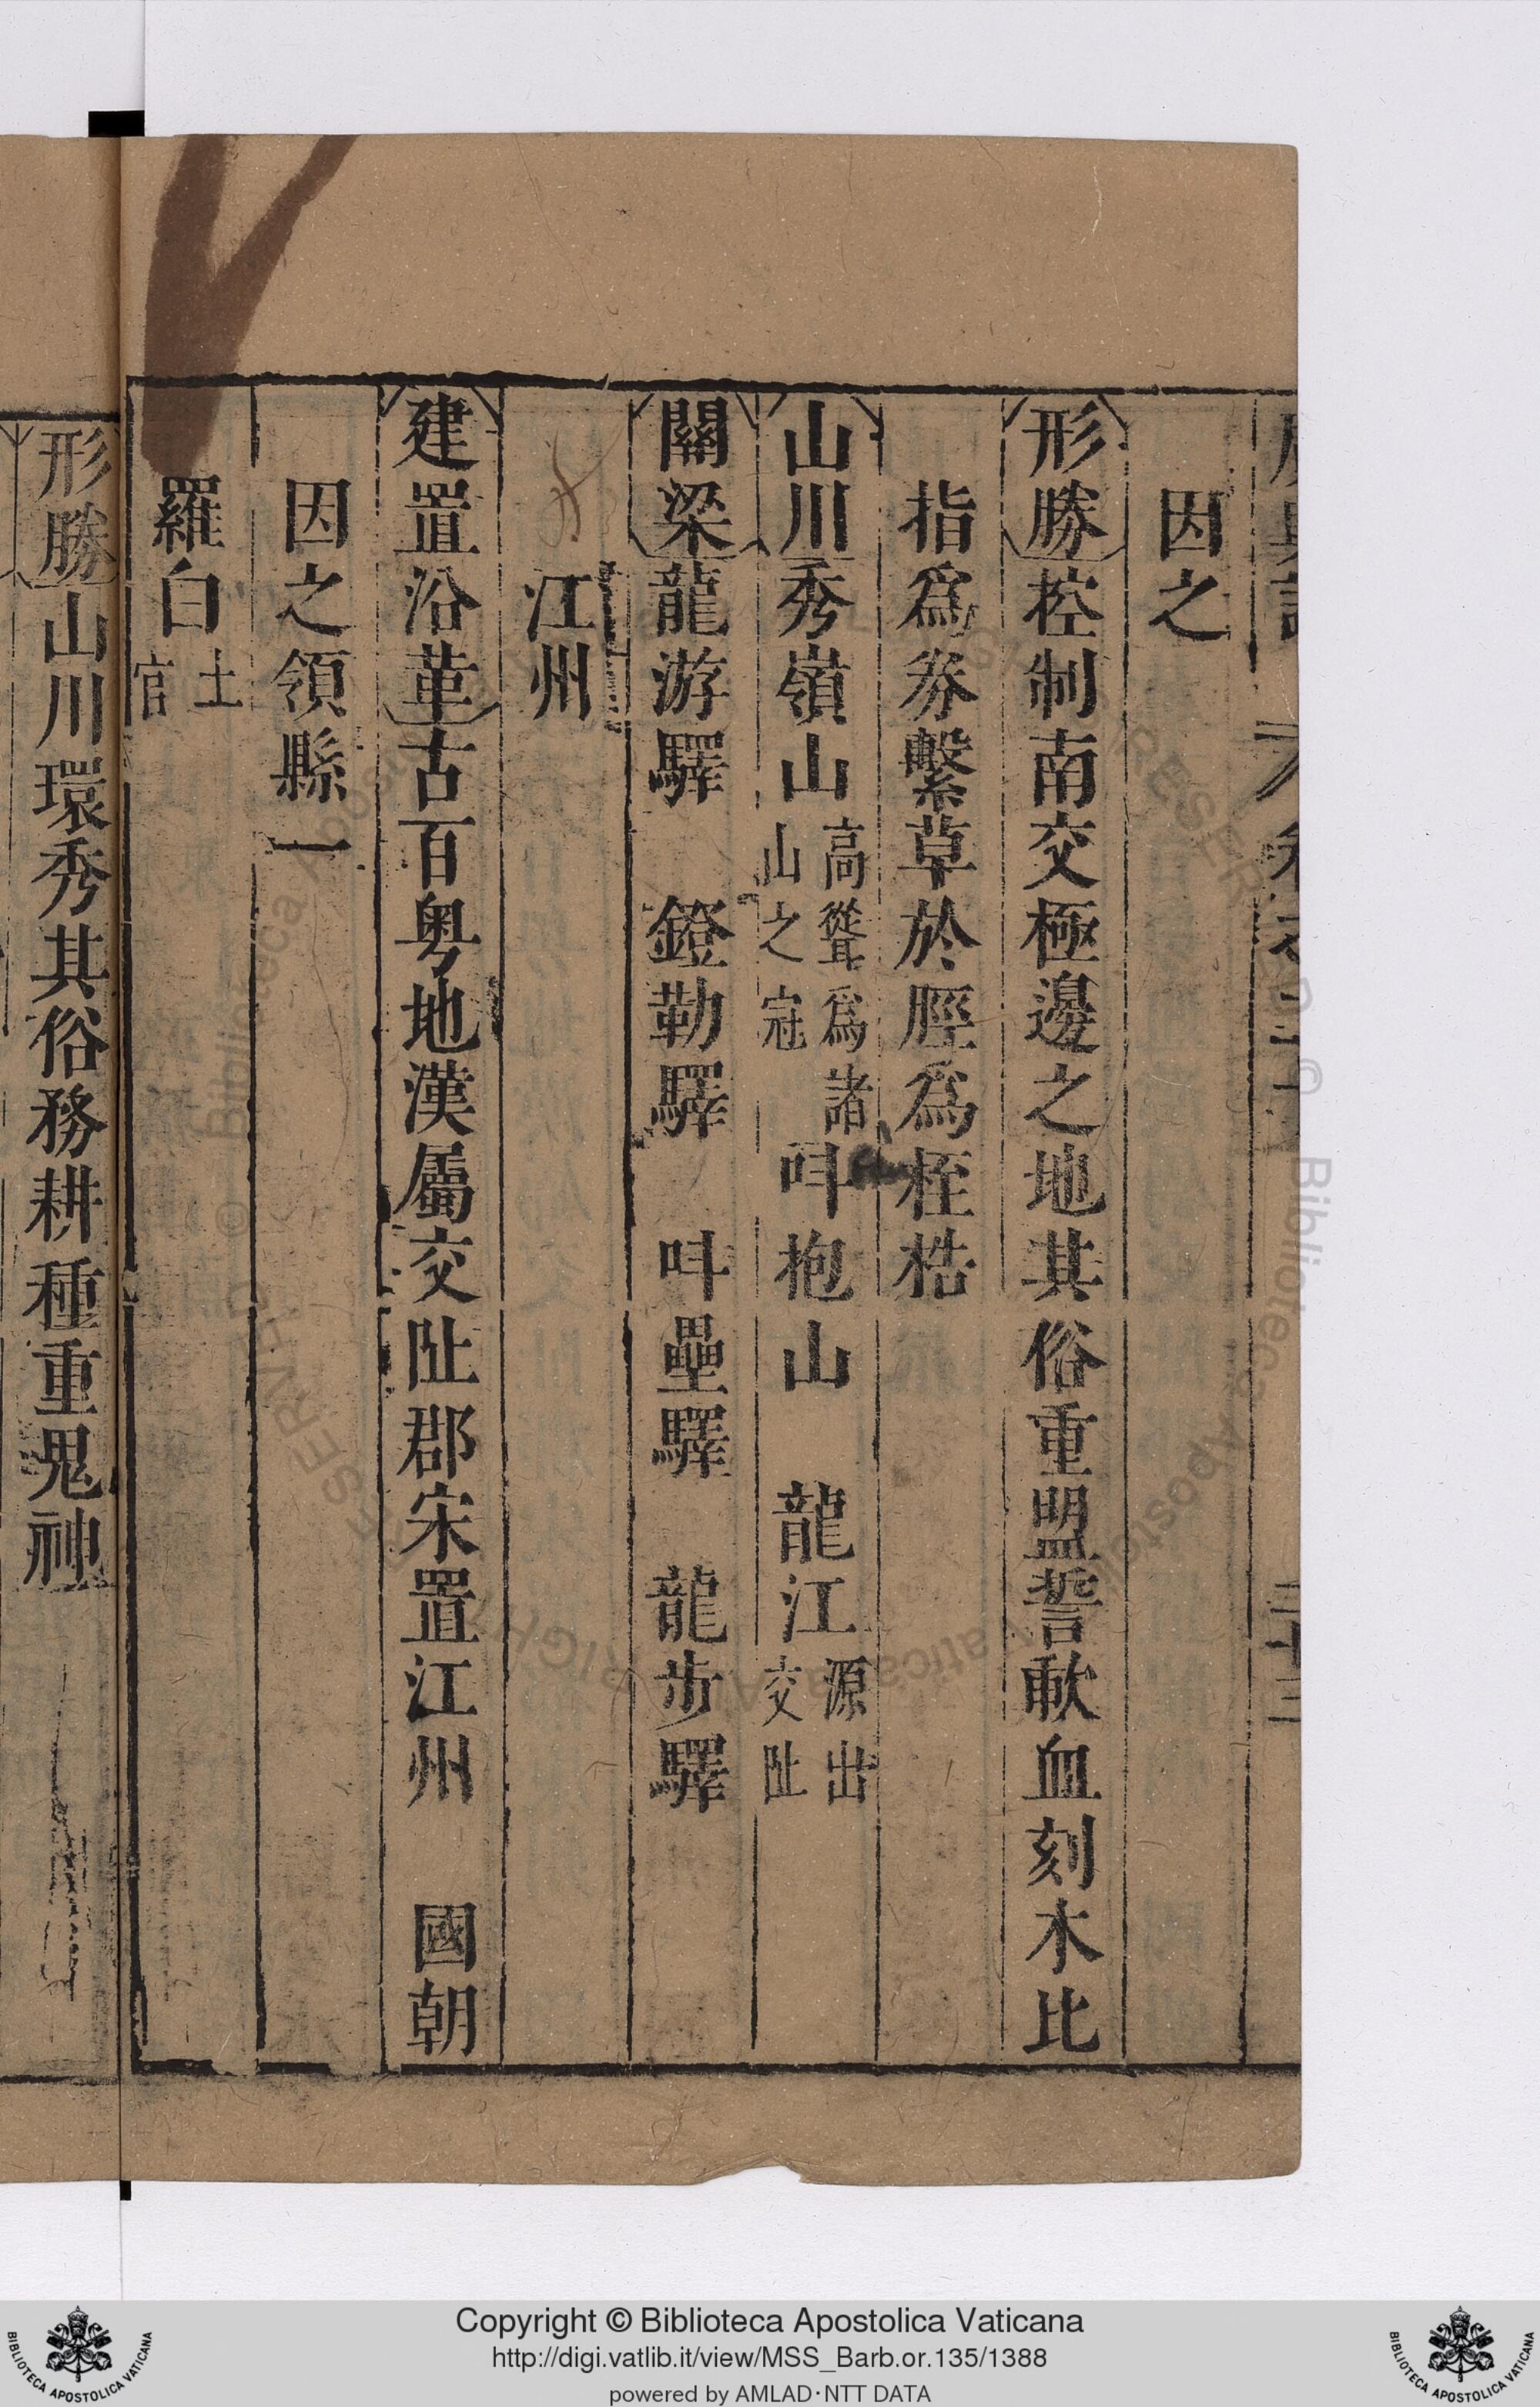 因之
形勝控制南交極邊之地其俗重盟誓歃血刻木比
指爲券繫草於脛爲桎梏
山川秀嶺山高聳爲諸山之冠叫抱山 龍江源出交阯
關梁龍游驛 鐙勒驛 叫壘驛 龍步驛
江州
建置沿革古百粤地漢屬交阯郡宋置江州 國朝
因之領縣一
羅白土官
形勝山川環秀其俗務耕種重鬼神
Copyright © Biblioteca Apostolica Vaticana
http://digi.vatlib.it/view/MSS_Barb.or.135/1388
powered by AMLAD·NTT DATA
BIBLIOTECA APOSTOLICA VATICANA
BIBLIOTECA APOSTOLICA VATICANA